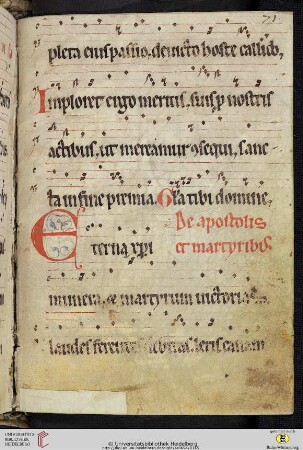 71
pleta eius passio, deuicto hoste callido,
Imploret ergo meritis, suisq; nostris
actibus, ut mereamur consequi, sanc
ta in fine premia. Gla tibi domine,
De apostolis
E
terna xpi
et martyribus
munera, & martyrum uictorias
laudes ferentes debitas, letis canam
UNIVERSITÄTS-
BIBLIOTHEK
HEIDELBERG
© Universitätsbibliothek Heidelberg